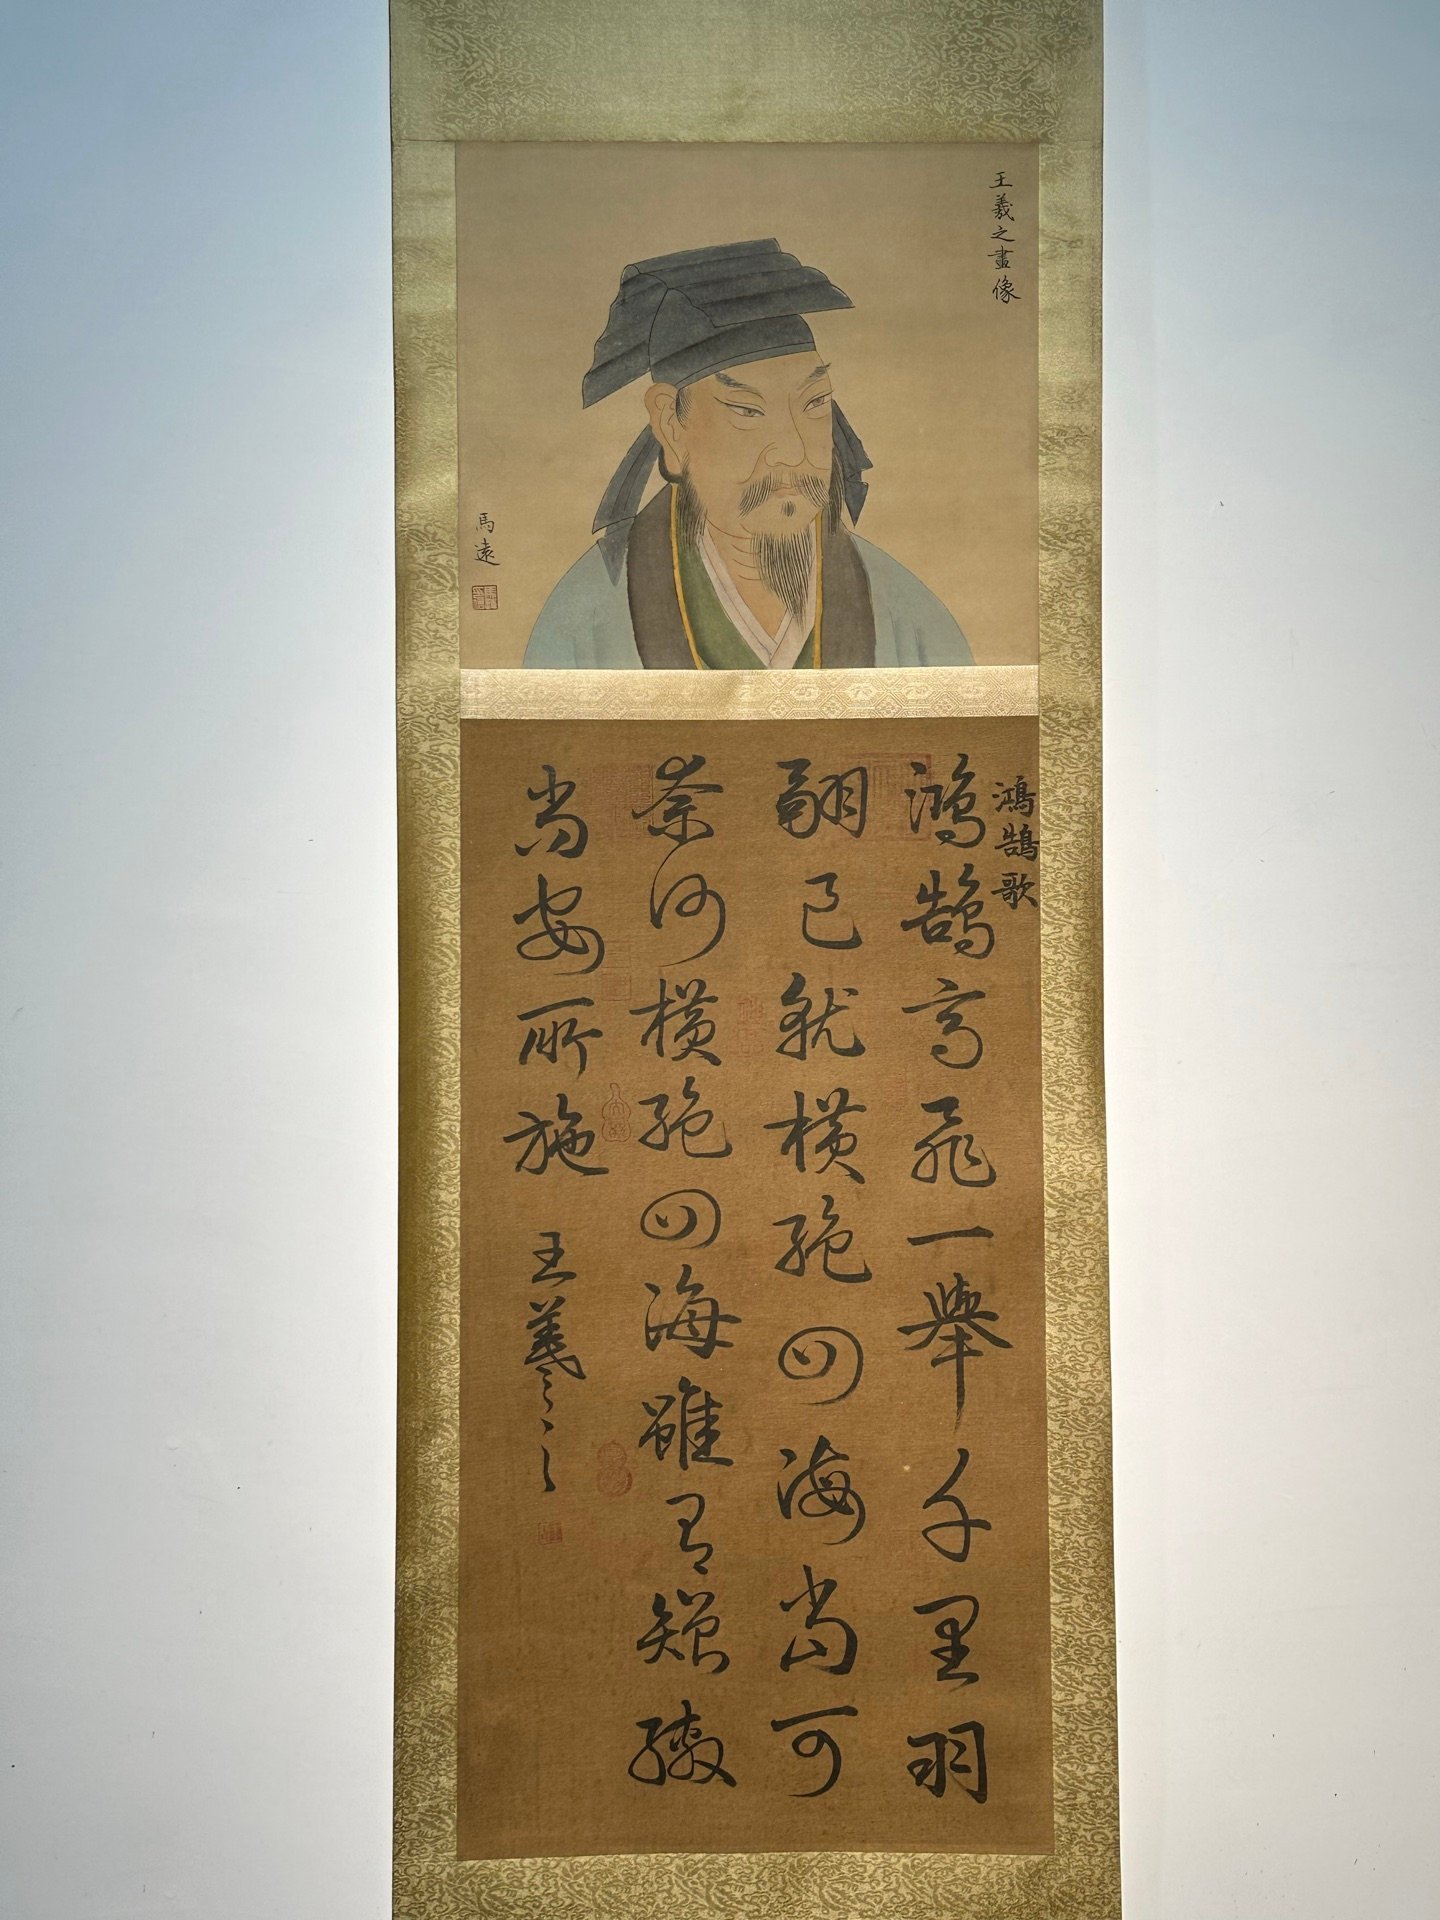 王羲之畫像
馬遠
鴻鵠歌
鴻鵠高飛一舉千里羽
翮已就橫絕四海當可
奈何橫絕四海雖有矰繳
尚安所施
王羲之